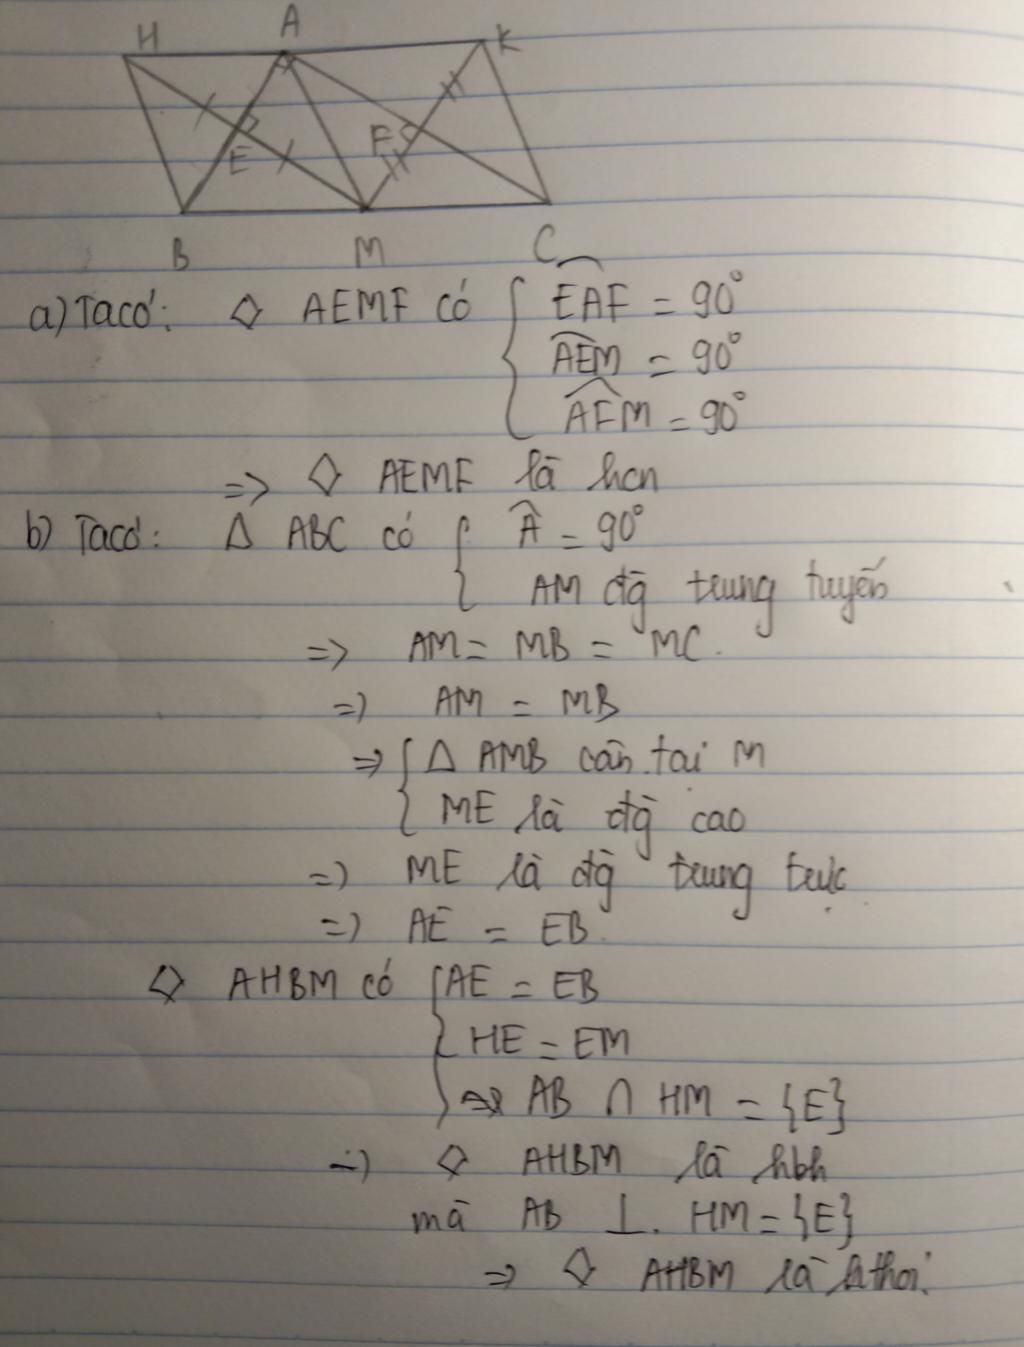 H A K
E F
B M C
a) Ta có: ◇ AEMF có { EAF = 90°
AEM = 90°
AFM = 90°
=> ◇ AEMF là hcn
b) Ta có: Δ ABC có { Â = 90°
AM đg trung tuyến
=> AM = MB = MC.
=> AM = MB
=> { Δ AMB cân tại M
ME là đg cao
=> ME là đg trung trực
=> AE = EB.
◇ AHBM có { AE = EB
HE = EM
AB ∩ HM = {E}
=> ◇ AHBM là hbh
mà AB ⊥ HM = {E}
=> ◇ AHBM là hthoi